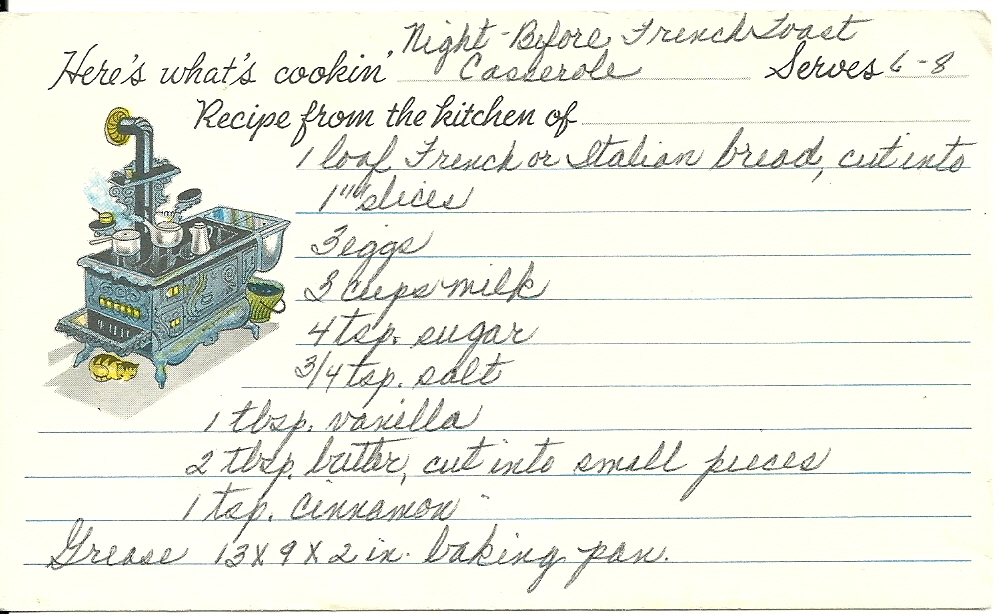 Here's what's cookin' Night-Before French Toast
Casserole Serves 6-8
Recipe from the kitchen of
1 loaf French or Italian bread, cut into
1" slices
3 eggs
3 cups milk
4 tsp. sugar
3/4 tsp. salt
1 tbsp. vanilla
2 tbsp. butter, cut into small pieces
1 tsp. cinnamon
Grease 13 x 9 x 2 in. baking pan.